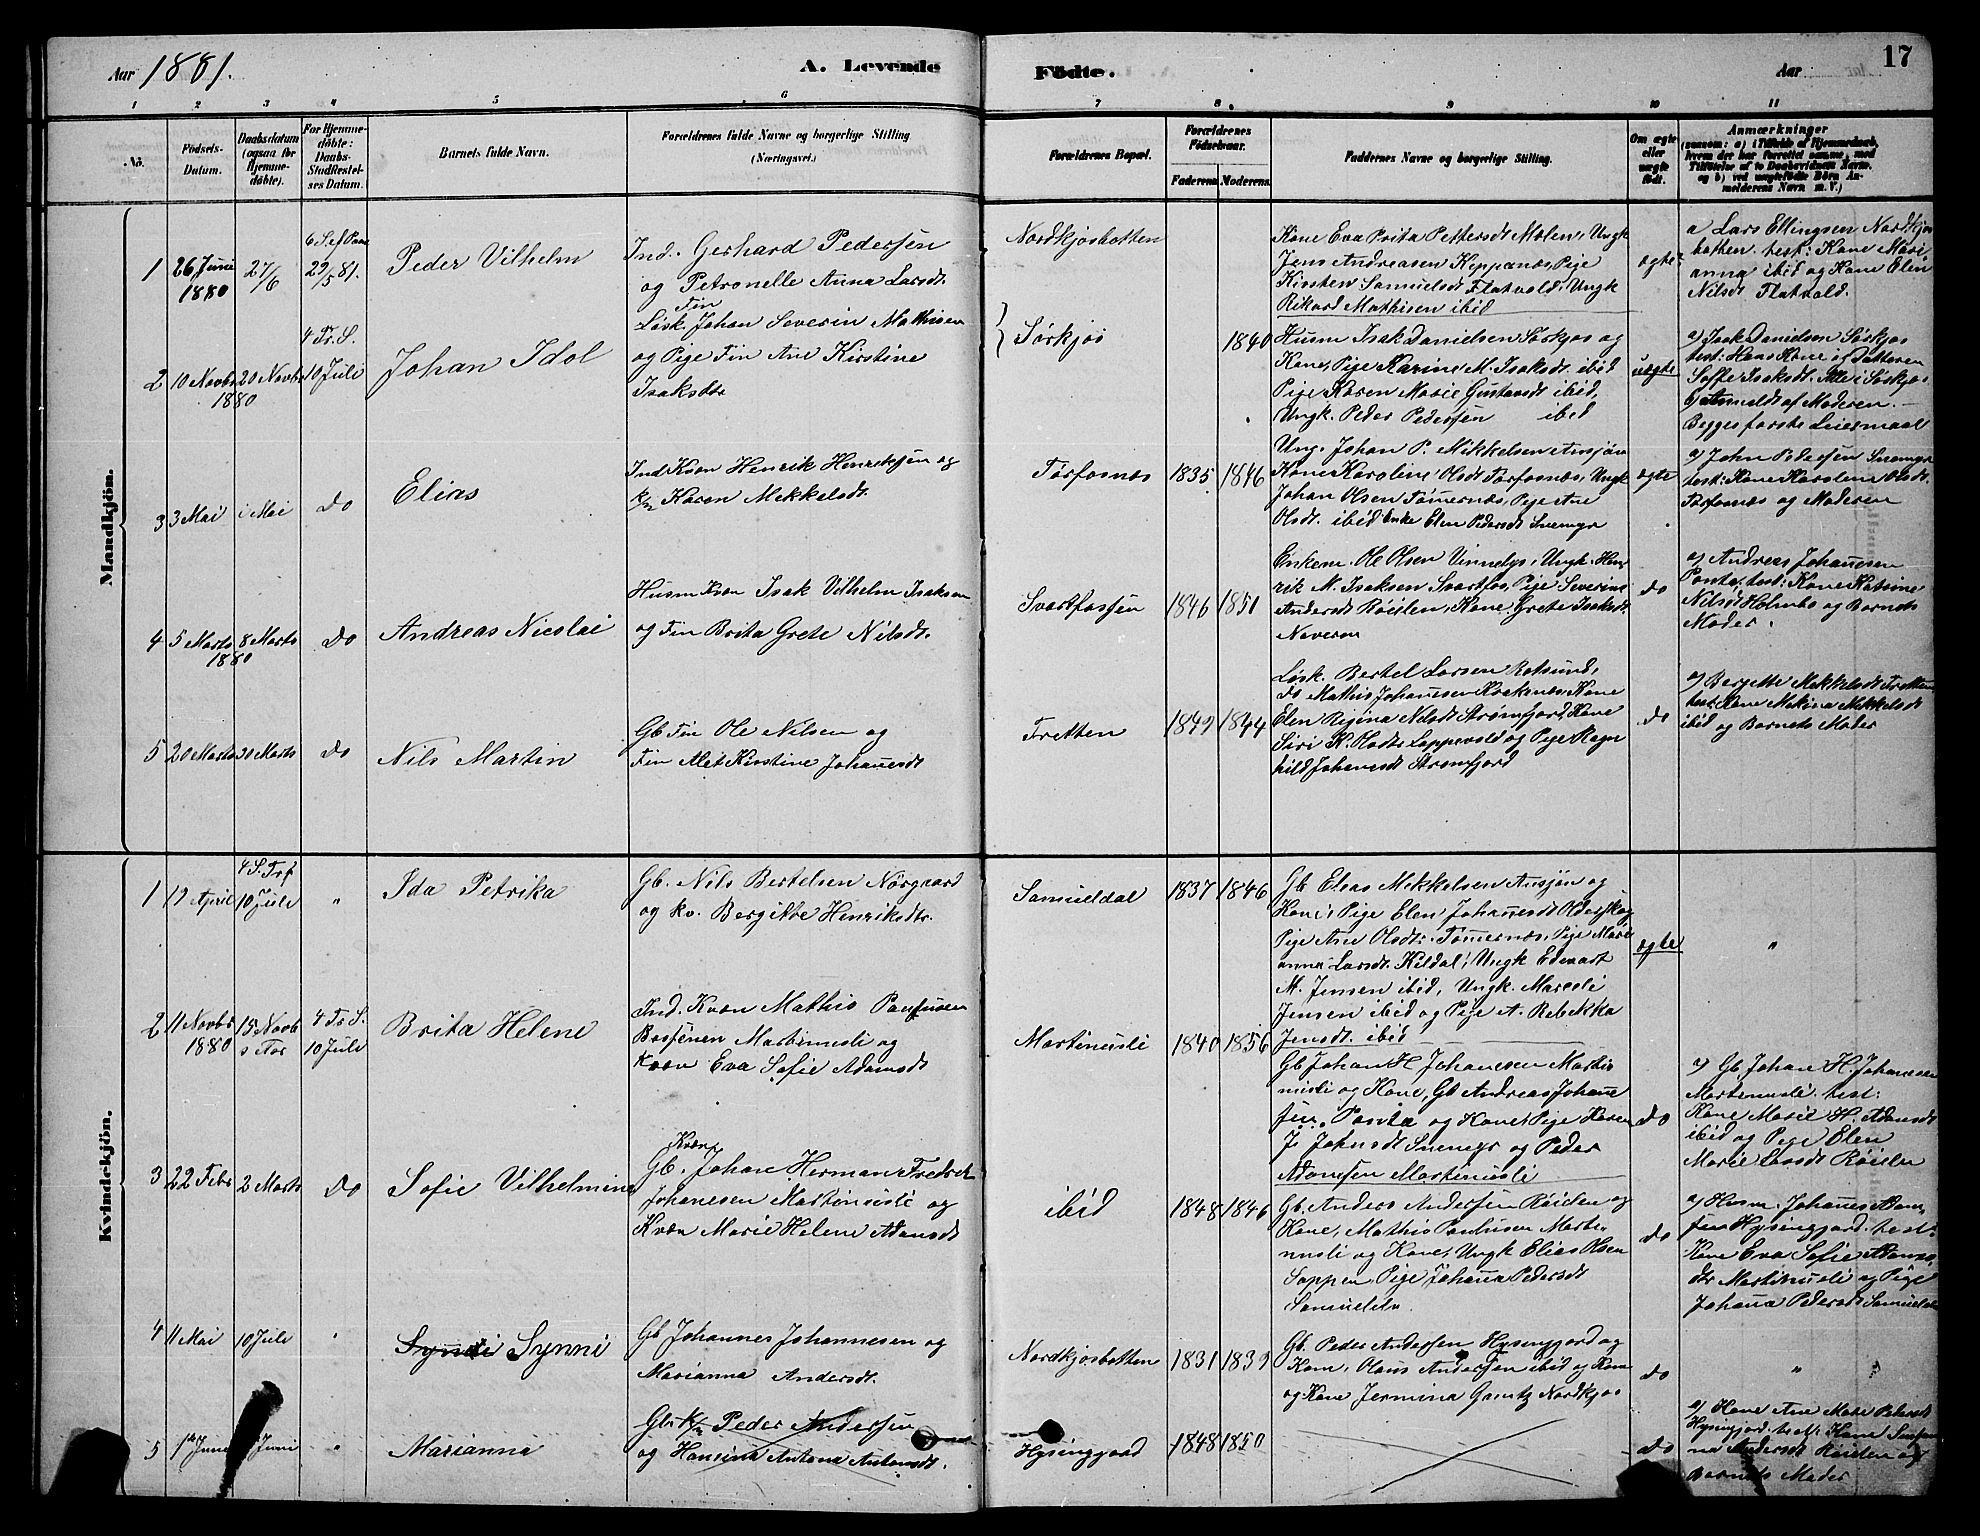 Aar 1881.
A. Levende
Födte.
Aar
17
1 2 3 4 5 6 7 8 9 10 11
No.
Födsels-
Datum.
Daabsdatum
(ogsaa for
Hjemme-
döbte).
For Hjemme-
döbte:
Daabs-
Stadfæstel-
ses Datum.
Barnets fulde Navn.
Forældrenes fulde Navne og borgerlige Stilling
(Næringsvei.)
Forældrenes Bopæl.
Forældrenes
Födselsaar.
Faderens. Moderens.
Faddernes Navne og borgerlige Stilling.
Om ægte
eller
uægte
födt.
Anmærkninger
(saasom: a) i Tilfælde af Hjemmedaab,
hvem der har forrettet samme, med
Tilföielse af to Daabsvidners Navne,
og b) ved uægtefödte Börn An-
melderens Navn m. V.)
Mandkjön.
1
26 Juni
1880
27/6
29/5 81.
Peder Vilhelm
Ind. Gerhard Pedersen
og Petronelle Anna Larsdt.
Nordkjosbotten
Kone Eva Brita Pettersdt Molen, Ungk
Jens Andreasen Keppenæs, Pige
Kirsten Samuelsdt Flatvold, Ungk
Rikard Mathisen ibid
ægte
a Lars Ellingsen Nordkjos
botten. test: Kone Mari
anna ibid og Kone Elen
Nilsdt Flatvold.
2
10 Novbr
1880
20 Novbr
4 Tr. S.
10 Juli
Johan Idol
Fin
Løsk. Johan Severin Mathisen
og Pige Fin Ane Kirstine
Isaksdtr
Sørkjos
1840
Husm Isak Danielsen Sørkjos og
Kone, Pige Karine M. Isaksdt. ibid
Pige Karen Marie Gustavsdt ibid,
Ungk. Peder Pedersen ibid
uægte
a) Isak Danielsen Sørkjos
test: Hans Kone og Datteren
Soffe Isaksdt. Alle i Sørkjos.
b) Anmeldt af Moderen.
Begges første Leiermaal
3
3 Mai
Mai
do
Elias
Ind Kvæn Henrik Henriksen og
k/n Karen Mikkelsdt.
Tørfosnæs
1835
1846
Ung. Johan P. Mikkelsen Ansjøn
Kone Karoline Olsdt Tørfosnæs, Ungk
Johan Olsen Tømernæs, Pige Ane
Olsdt. ibid Enke Elen Pedersdt Snemyr
ægte
a) John Pedersen Snemyr
test: Kone Karoline Olsdt.
Tørfosnæs og Moderen
4
5 Marts
1880
8 Marts
do
Andreas Nicolai
Husm Kvæn Isak Vilhelm Isaksen
og Fin Brita Grete Nilsdt.
Svartfossen
1846
1851
Enkem. Ole Olsen Vinnelys, Ungk. Hen
rik M. Isaksen Svartfos, Pige Severine
Andersdt Røielen, Kone Grete Isaksdt
Naveren
do
a) Andreas Johannesen
Ponta, test: Kone Katrine
Nilsdt Holmbo og Barnets
Moder.
5
20 Marts
30 Marts
do
Nils Martin
Gb Fin Ole Nilsen og
Fin Alet Kirstine Johannesdt
Fretten
1849
1844
Løsk. Bertel Larsen Rotsund,
do Mathis Johannesen Kraknæs, Kone
Elen Regina Nilsdt Strømfjord, Kone
Siri K. Olsdt Lappevold og Pige Ragn
hild Johannesdt Strømfjord
do
a) Bergette Mikkelsdt Fretten
test: Kone Mekina Mikkelsdt
ibid og Barnets Moder
Kvindekjön.
1
19 April
10 Juli
"
Ida Petrika
Gb. Nils Bertelsen Norgaard
og kv. Bergitte Henriksdtr.
Samueldal
1837
1846
Gb Elias Mikkelsen Ansjøn og
Kone, Pige Elen Johannesdt Olderskog
Pige Ane Olsdt. Tømernæs, Pige Mari
anna Larsdt. Kildal, Ungk Edvart
M. Jensen ibid, Ungk. Mareli
Jensen ibid og Pige A. Rebekka
Jensdt. ibid
ægte
"
2
11 Novbr
1880
15 Novb
4 Tr S.
10 Juli
Brita Helene
Ind. Kvæn Mathis Paulusen
Martinusli og
Kvæn Eva Sofie Adamsdt
Martinusli
1840
1856
Gb Johan H Johannesen Martin
usli og Kone, Gb Andreas Johanne
sen, Ponta og Kone, Pige Karen
J. Johnsdt Snemyr og Peder
Adamsen Martinusli
do
a) Gb, Johan H. Johannesen
Martinusli. test:
Kone Marie H. Adamsdt
ibid og Pige Elen
Marie Larsdt Røielen
3
22 Febr
2 Marts
do
Sofie Vilhelmine
Kvæn
Gb. Johan Herman Fredrik
Johanesen Martinusli og
Kvæn Marie Helene Adamsdt
ibid
1848
1846
Gb. Anders Andersen Røielen og
Kone, Mathis Paulusen Marti
nusli og Kone, Ungk Elias Olsen
Sappen, Pige Johanna Pedersdt
Samueldn.
do
a) Husm Johannes Adam
sen Hysinggjord. test:
Kone Eva Sofie Adams
dtr Martinusli og Pige
Johanna Pedersdt Samueldn
4
11 Mai
10 Juli
"
Synni
Gb Johannes Johannesen og
Marianna Andersdt.
Nordkjosbotten
1831
1839
Gb. Peder Andersen Hysinggjord og
Kone, Olaus Andersen ibid og Kone
og Kone Jermina Gamtz Nordkjos
do
"
5
1ste Juni
Juni
"
Marianna
Gb. k/n Peder Andersen
og Hansina Antona Antonsdt.
Hysinggjord
1848
1850
do
a) Kone Ane Marie Pedersdt
Hysingjord. test: Kone
Andersdt Røielen og
Barnets Moder